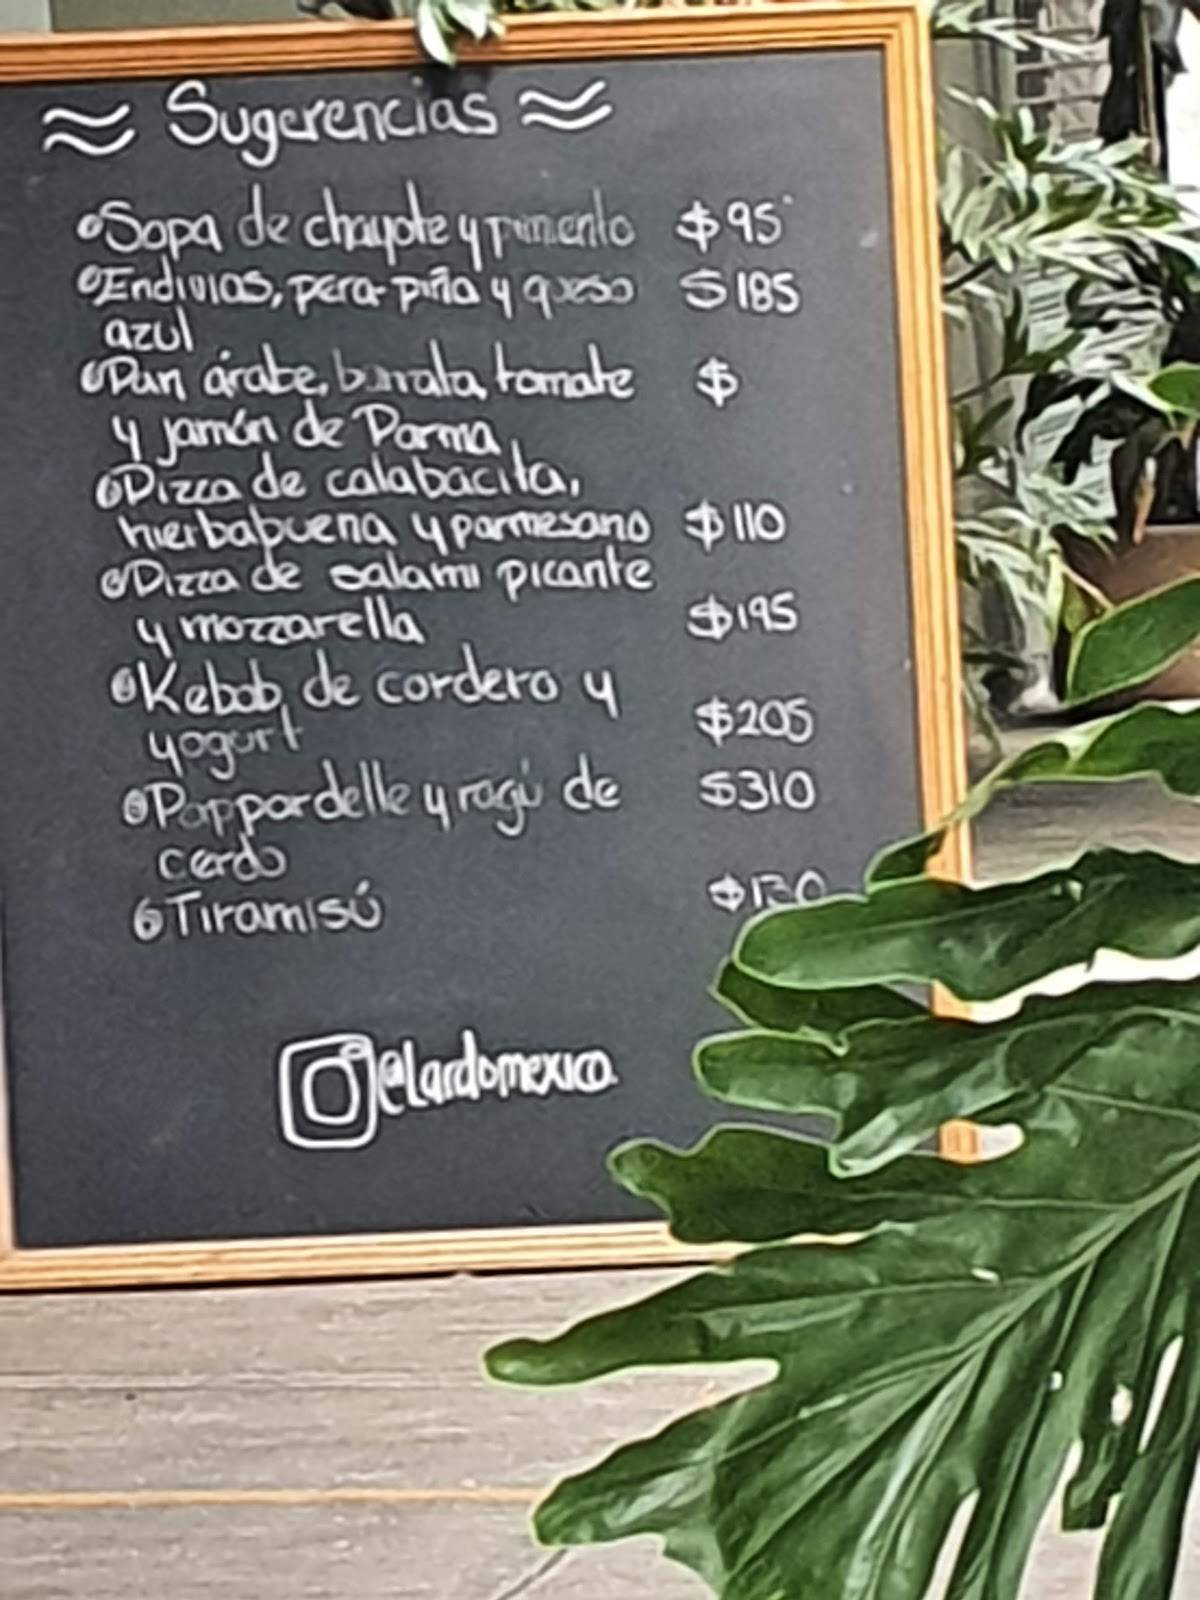 Sugerencias
Sopa de chayote y pimiento $95
Endivias, pera-piña y queso $185
azul
Pan árabe, burrata, tomate $
y jamón de Parma
Pizza de calabacita,
hierbabuena y parmesano $110
Pizza de salami picante
y mozzarella $195
Kebab de cordero y
yogurt $205
Pappardelle y ragú de $310
cerdo
Tiramisú $130
@lardomexico